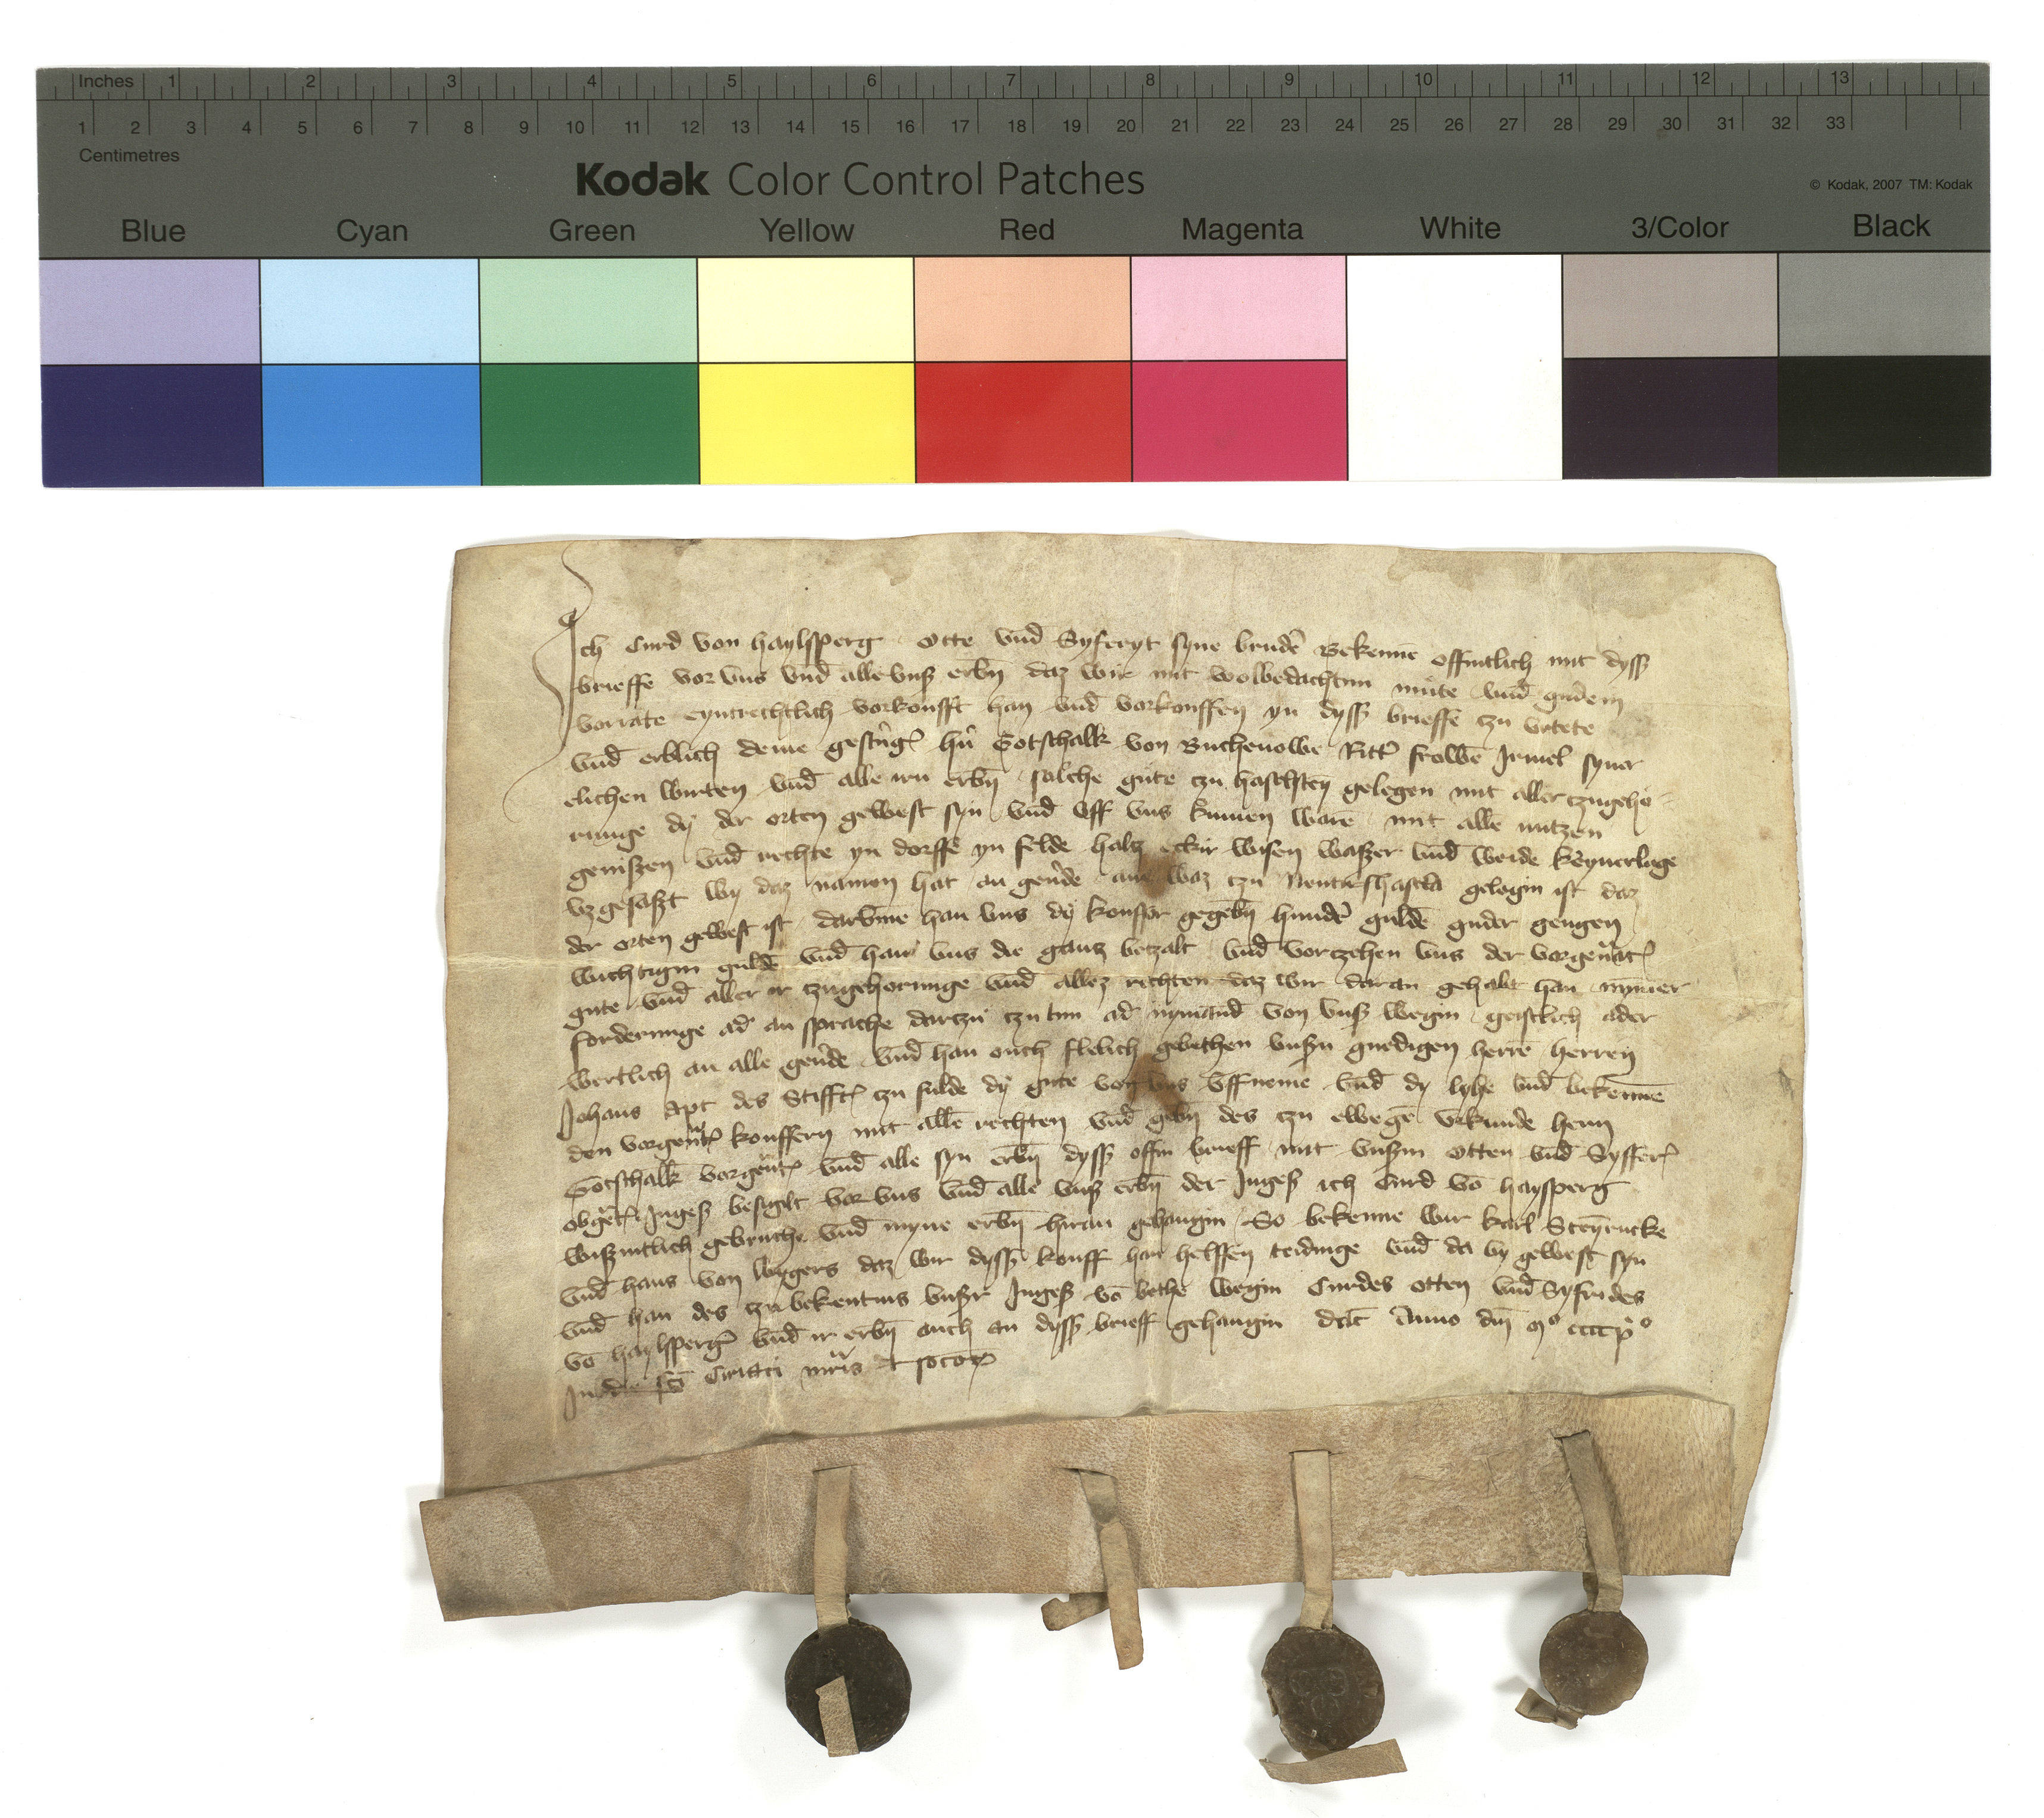 Inches 1 2 3 4 5 6 7 8 9 10 11 12 13
1 2 3 4 5 6 7 8 9 10 11 12 13 14 15 16 17 18 19 20 21 22 23 24 25 26 27 28 29 30 31 32 33
Centimetres
Kodak Color Control Patches
© Kodak, 2007 TM: Kodak
Blue Cyan Green Yellow Red Magenta White 3/Color Black
Ich Curd von haylsperg Otte vnd Syferyt syne brudẻ Bekenne offintlich mit dyss
brieffe vor vns vnd alle vnß erbn daz wir mit wolbedachtim mute vnd gudem
vorrate eyntrechtlich vorkoufft han vnd vorkouffen yn dyss brieffe czu vrtete
vnd erblich deme hn Gotschalk von Buchenowe Ritt frowe Irmel syner
elichen wirten vnd alle irn erbn solche gute czu gelegen mit aller czugeho
runge dy der orten gewest syn vnd vff vns kumen ware mit alle nutzen
genißen vnd rechte yn dorffe yn felde holtz eckir wisen waßer vnd weide keynerleye
vzgesaßt wy daz namen hat an gende waz czu gelegin ist daz
der orten gewest ist darvme han vns dy kouffer gegebn hundt gulde guder gengen
wichtigin gulde vnd han vns die gantz betzalt vnd vorczehen vns der
gute vnd aller ir czugehorunge vnd allez rechten daz wir daran gehabt han nymer
forderunge ad an sprache darczu czu tun ad nymand von vnß wegin geistlich ader
wertlich an alle vnd han ouch flelich gebethen vnßn gnedigen herre herren
Johans Apt des Stiffts czu fulde dy gute von vns vffneme vnd dy lyhe vnd bekenne
den kouffern mit alle rechten vnd gebn des czu ewege vrkunde hern
Gotschalk vnd alle syn erbn dyss offin brieff mit vnßm Otten vnd Syffer
Ingeß besigilt vor vns vnd alle vnß erbn der Ingeß ich Curd vo haysperg
wißintlich gebruche vnd myne erbn hiran gehangin So bekenne wir karl Steynrucke
vnd hans von daz wir dyss kouff han helffen teidinge vnd da by gewest syn
vnd han des czu bekentnis vnßr Ingeß vo bethe wegin Curdes Otten vnd Syfrides
vo haylsperg vnd ir erbn ouch an dyss brieff gehangin dat Anno dm mº cccc pº
In die sci Ciriaci mris et socor